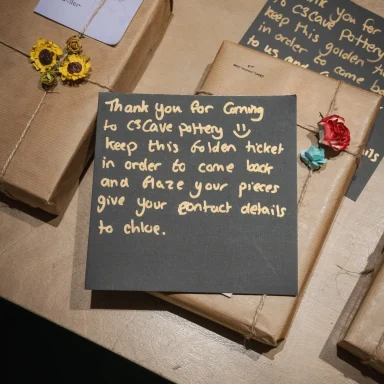 Thank you for Coming
to CSCave pottery
keep this Golden ticket
in order to come back
and Glaze your pieces
give your contact details
to chloe.
Thank you for
to CSCave Pottery
keep this golden
in order to come
to us and